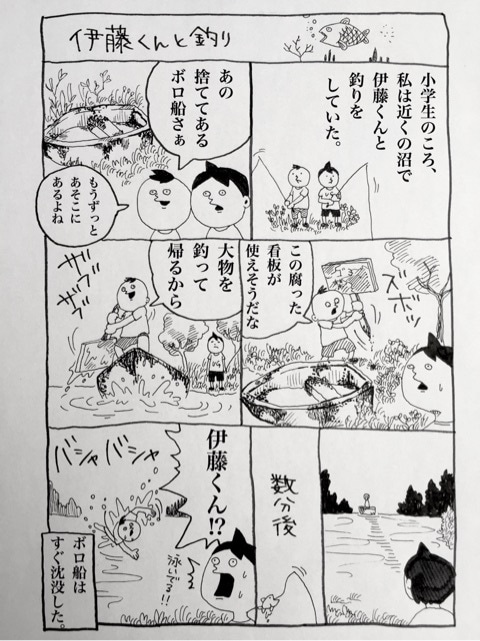 伊藤くんと釣り
小学生のころ、
私は近くの沼で
伊藤くんと
釣りを
していた。
あの
捨ててある
ボロ船さぁ
もうずっと
あそこに
あるよね
ズボッ
この腐った
看板が
使えそうだな
大物を
釣って
帰るから
ザブザブ
数分後
伊藤くん!?
泳いでる!!
バシャバシャ
ボロ船は
すぐ沈没した。